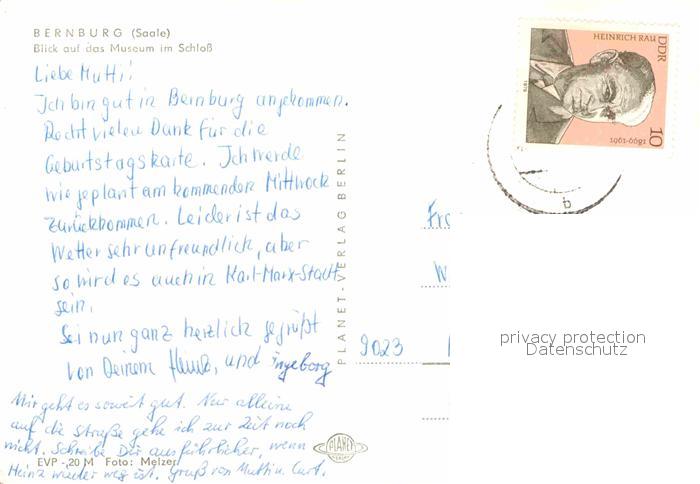 BERNBURG (Saale)
Blick auf das Museum im Schloß
Liebe Mutti!
Ich bin gut in Bernburg angekommen.
Recht vielen Dank für die
Geburtstagskarte. Ich werde
wie geplant am kommenden Mittwoch
zurückkommen. Leider ist das
Wetter sehr unfreundlich, aber
so wird es auch in Karl-Marx-Stadt
sein.
Sei nun ganz herzlich gegrüßt
von Deinem Heinz, und Ingeborg
Mir geht es soweit gut. Nur alleine
auf die Straße gehe ich zur Zeit noch
nicht. Schreibe Dir ausführlicher, wenn
Heinz wieder weg ist. Gruß von Mutti u. Curt.
EVP -,20 M Foto: Melzer
PLANET-VERLAG BERLIN
PLANET
VERLAG
HEINRICH RAU
DDR
10
1899-1961
b
Fr
W
9023
privacy protection
Datenschutz